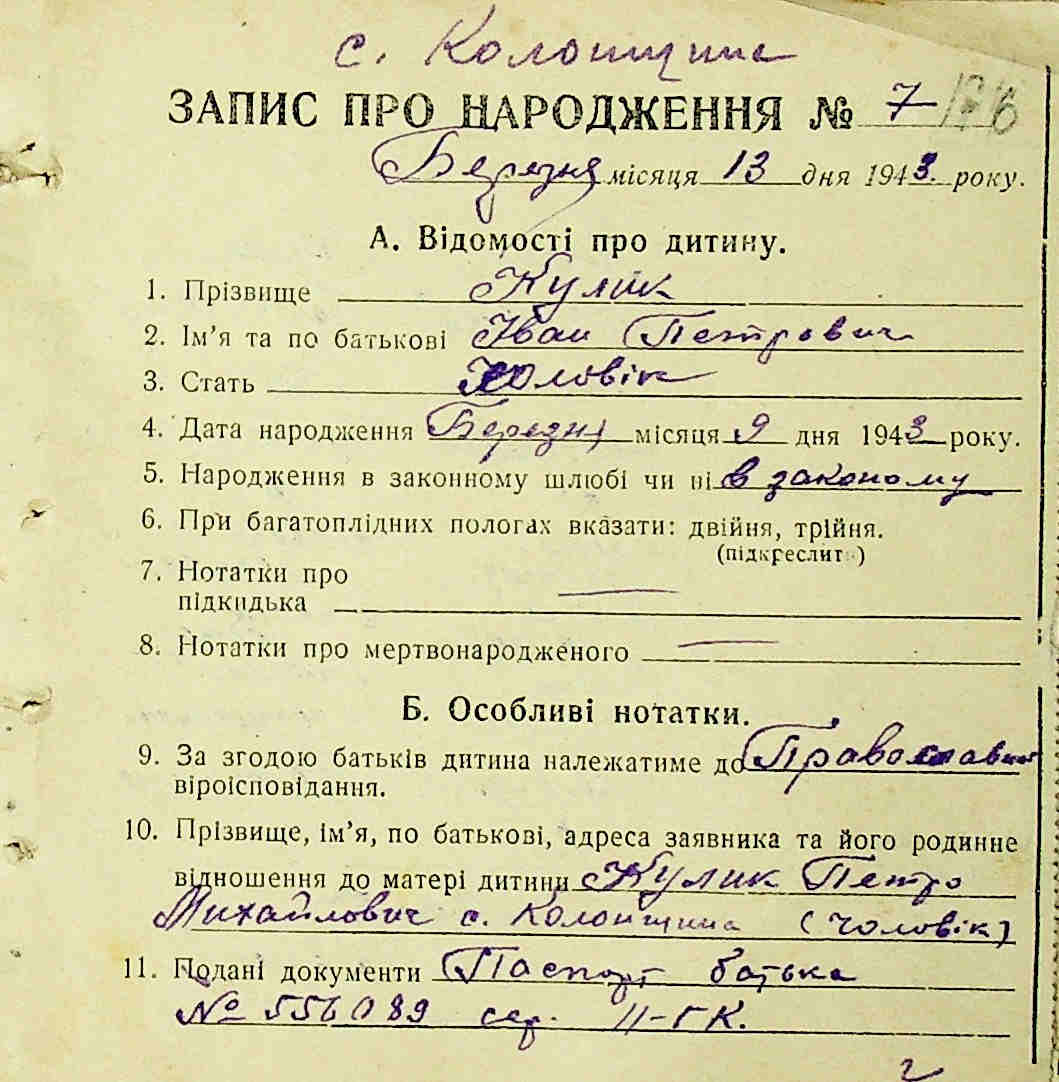 с. Колонщина
ЗАПИС ПРО НАРОДЖЕННЯ № 7
Березня місяця 13 дня 1943. року.
А. Відомості про дитину.
1. Прізвище Кулик
2. Ім’я та по батькові Іван Петрович
3. Стать Чоловік
4. Дата народження Березня місяця 9 дня 1943 року.
5. Народження в законному шлюбі чи ні в законому
6. При багатоплідних пологах вказати: двійня, трійня.
(підкреслит )
7. Нотатки про
підкидька
8. Нотатки про мертвонародженого
Б. Особливі нотатки.
9. За згодою батьків дитина належатиме до Православне
віроісповідання.
10. Прізвище, ім’я, по батькові, адреса заявника та його родинне
відношення до матері дитини Кулик Петро
Михайлович с. Колонщина (чоловік)
11. Подані документи Паспорт батька
№ 556089 сер. II-ГК.